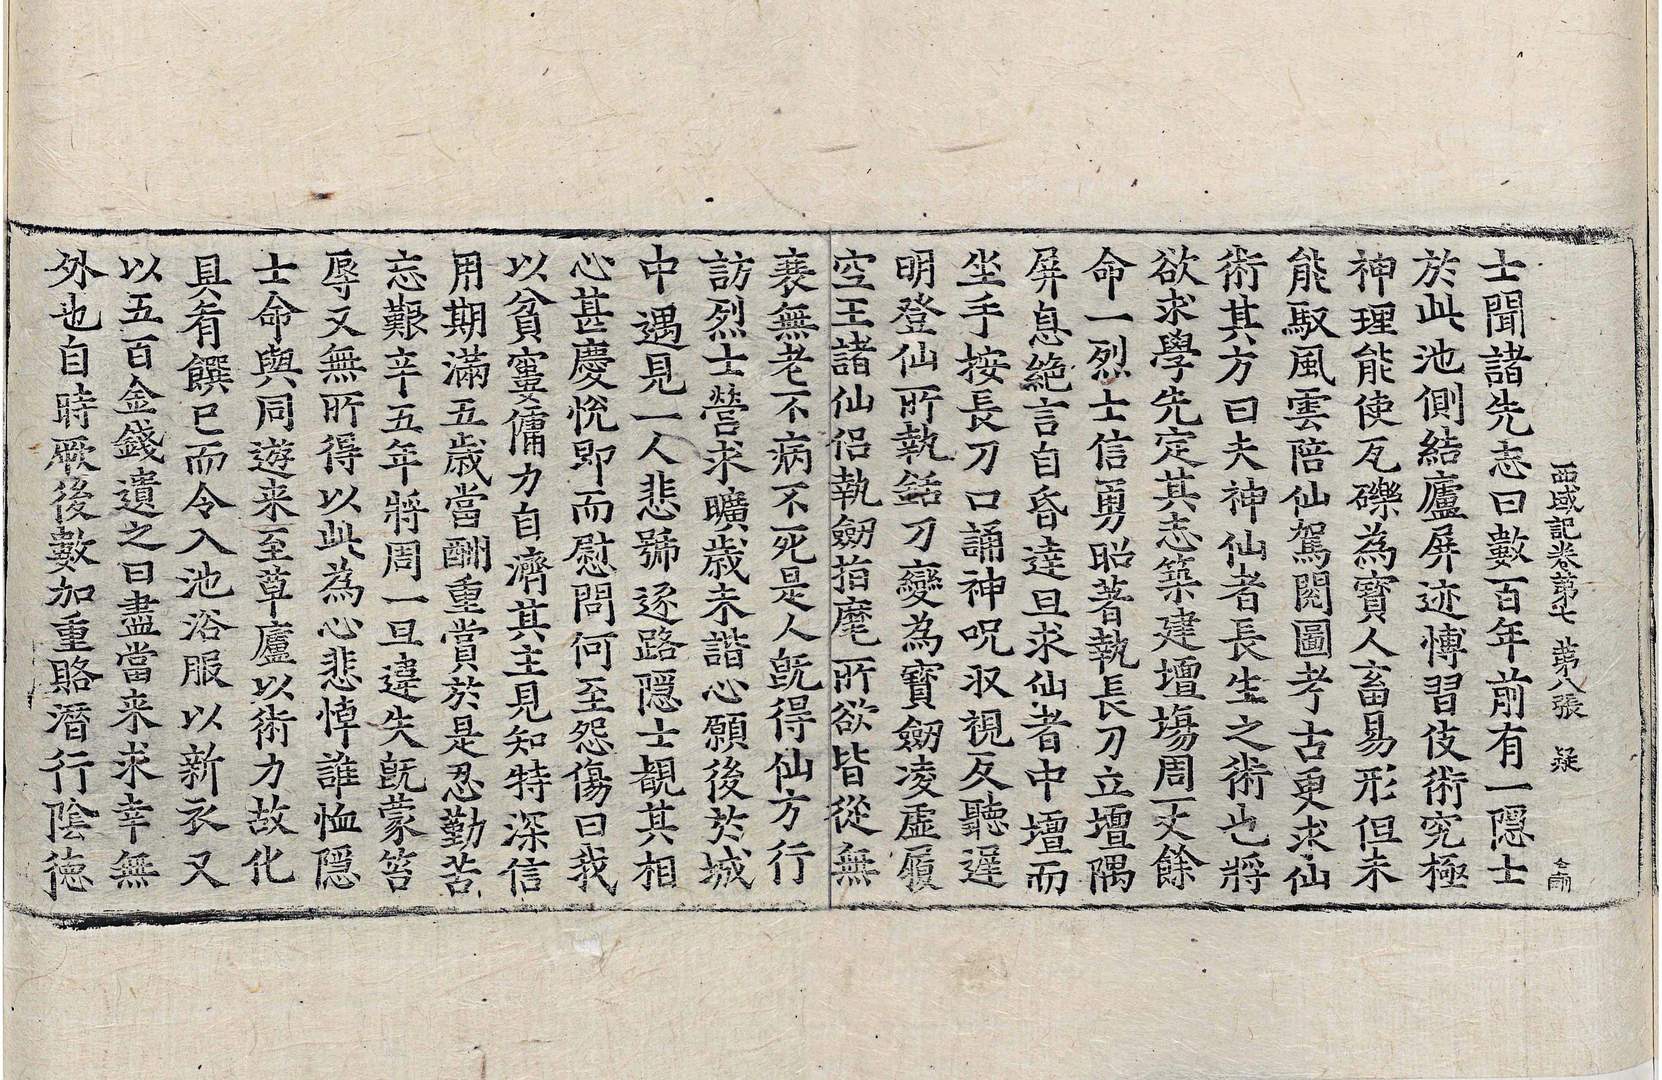 西域記卷第七 第八張 疑
士聞諸先志曰數百年前有一隱士
於此池側結廬屏迹博習伎術究極
神理能使瓦礫為寶人畜易形但未
能馭風雲陪仙駕閱圖考古更求仙
術其方曰夫神仙者長生之術也將
欲求學先定其志築建壇場周一丈餘
命一烈士信勇昭著執長刀立壇隅
屏息絕言自昏達旦求仙者中壇而
坐手按長刀口誦神呪收視反聽遲
明登仙所執銛刀變為寶劒凌虛履
空王諸仙侶執劒指麾所欲皆從無
衰無老不病不死是人旣得仙方行
訪烈士營求曠歲未諧心願後於城
中遇見一人悲號逐路隱士覩其相
心甚慶悅即而慰問何至怨傷曰我
以貧窶傭力自濟其主見知特深信
用期滿五歲當酬重賞於是忍勤苦
忘艱辛五年將周一旦違失旣蒙笞
辱又無所得以此為心悲悼誰恤隱
士命與同遊来至草廬以術力故化
具肴饌已而令入池浴服以新衣又
以五百金錢遺之曰盡當来求幸無
外也自時厥後數加重賂潛行陰德